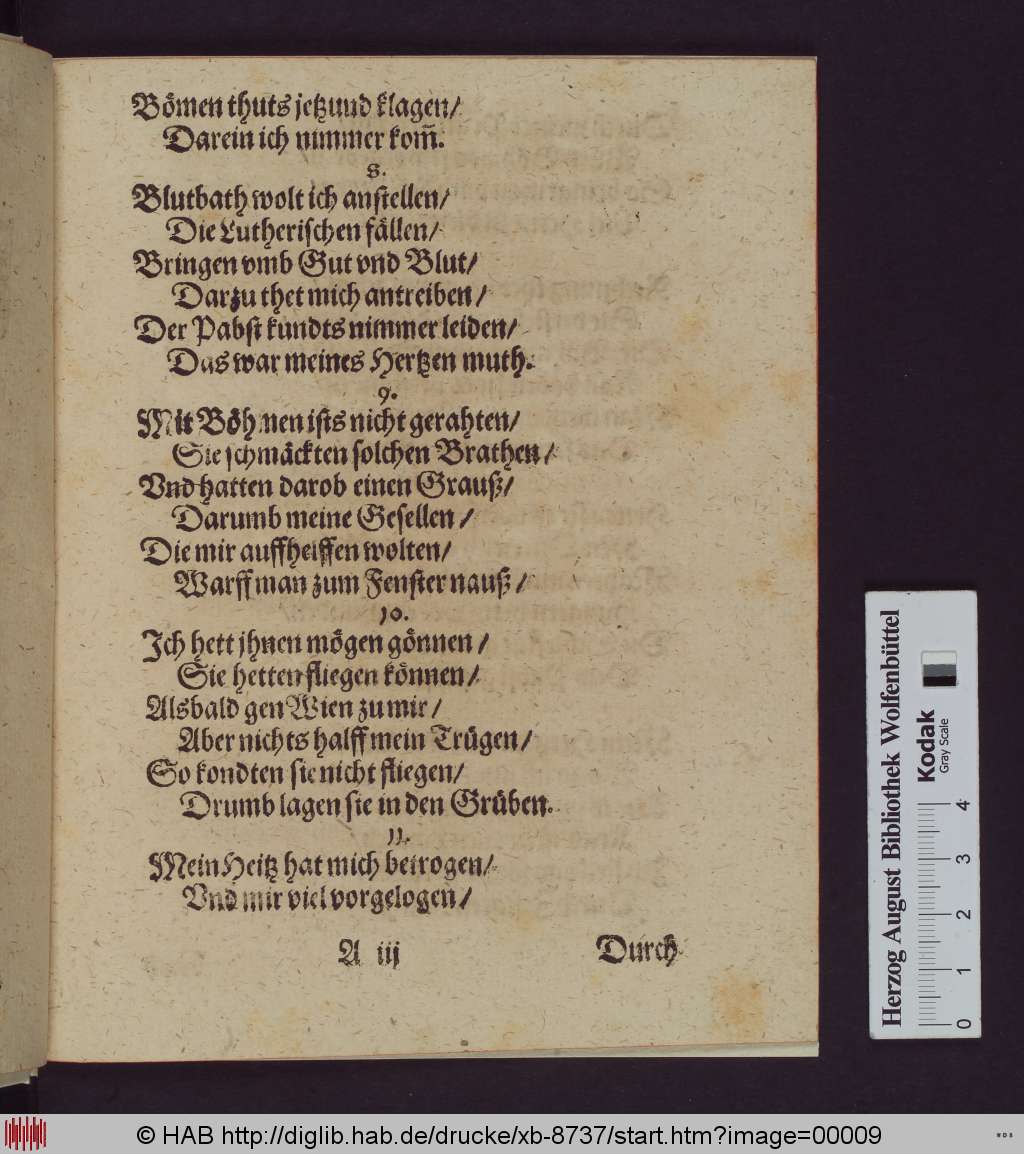 Bömen thuts jetzund klagen/
Darein ich nimmer kom̃.
8.
Blutbath wolt ich anstellen/
Die Lutherischen fällen/
Bringen vmb Gut vnd Blut/
Darzu thet mich antreiben/
Der Pabst kundts nimmer leiden/
Das war meines Hertzen muth.
9.
Mit Böhmen ists nicht gerahten/
Sie schmäckten solchen Brathen/
Vnd hatten darob einen Grauß/
Darumb meine Gesellen/
Die mir auffheiffen wolten/
Warff man zum Fenster nauß/
10.
Ich hett jhnen mögen gönnen/
Sie hetten fliegen können/
Alsbald gen Wien zu mir/
Aber nichts halff mein Trügen/
So kondten sie nicht fliegen/
Drumb lagen sie in den Grüben.
11.
Mein Heitz hat mich betrogen/
Vnd mir viel vorgelogen/
A iij Durch
Herzog August Bibliothek Wolfenbüttel
Kodak
Gray Scale
0 1 2 3 4
© HAB http://diglib.hab.de/drucke/xb-8737/start.htm?image=00009